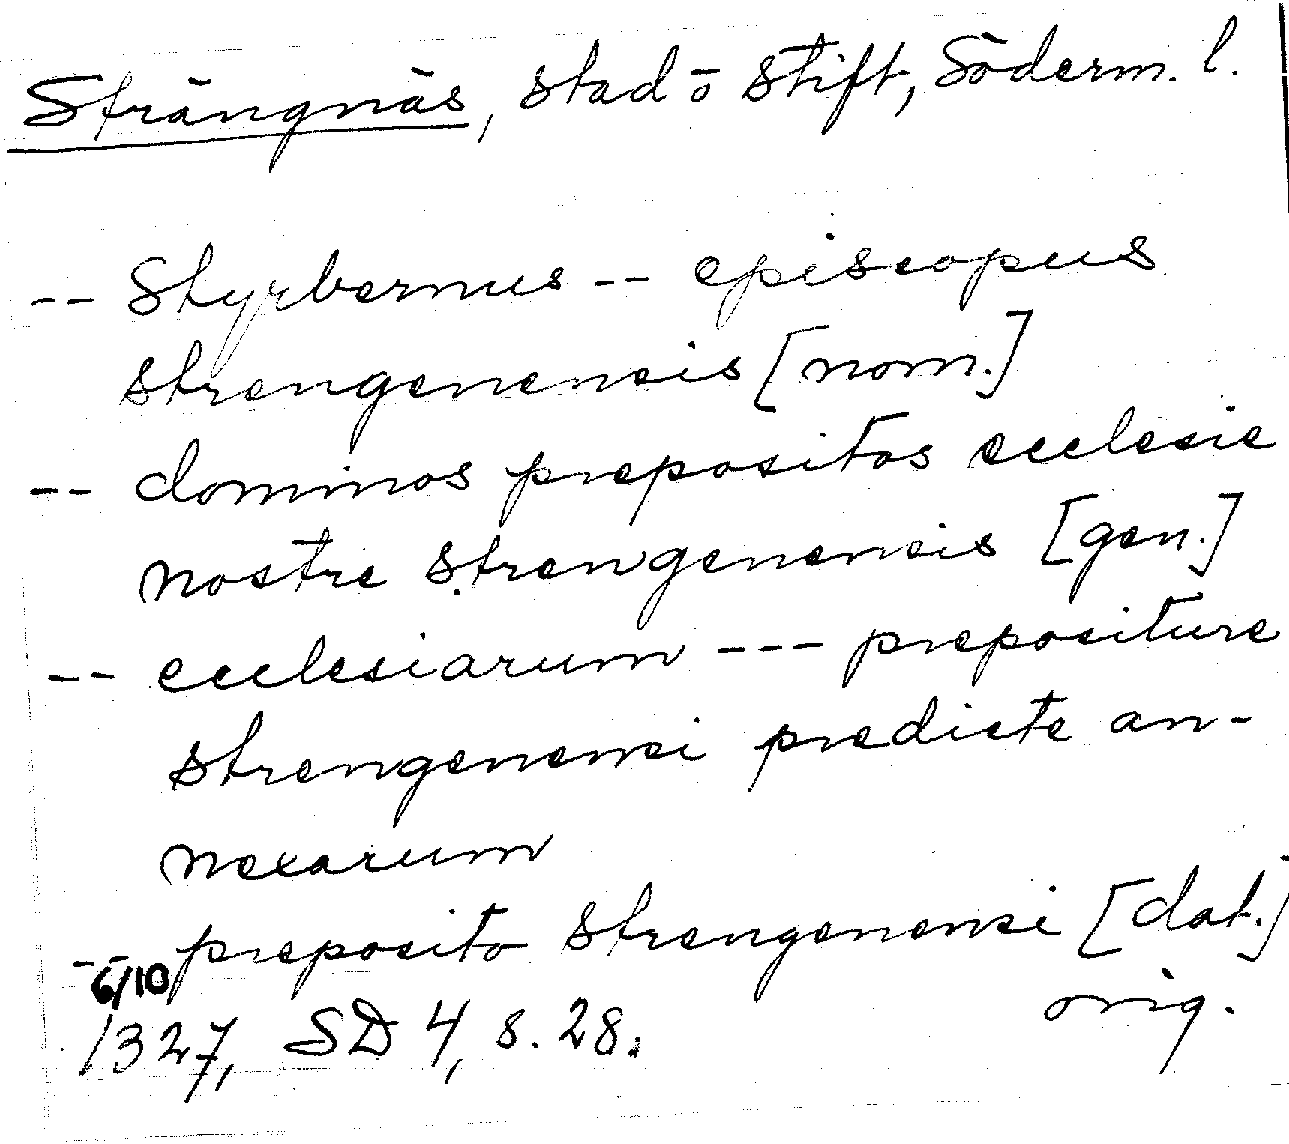 Strängnäs, stad o stift, Söderm. l.
-- Styrbernus -- episcopus
strengenensis [nom.]
-- dominos prepositos ecclesie
nostre strengenensis [gen.]
-- ecclesiarum --- prepositure
strengenensi predicte an-
nexarum
-- preposito strengenensi [dat.]
6/10 orig.
1327, SD 4, s. 28.